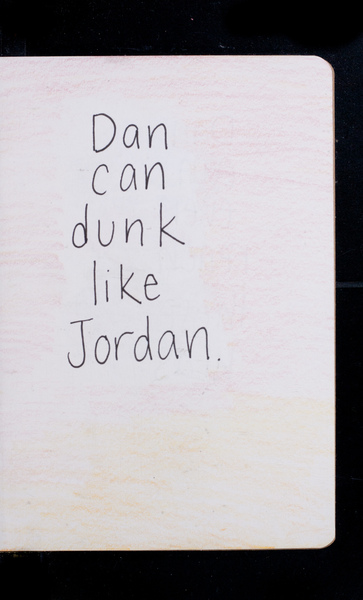 Dan
can
dunk
like
Jordan.